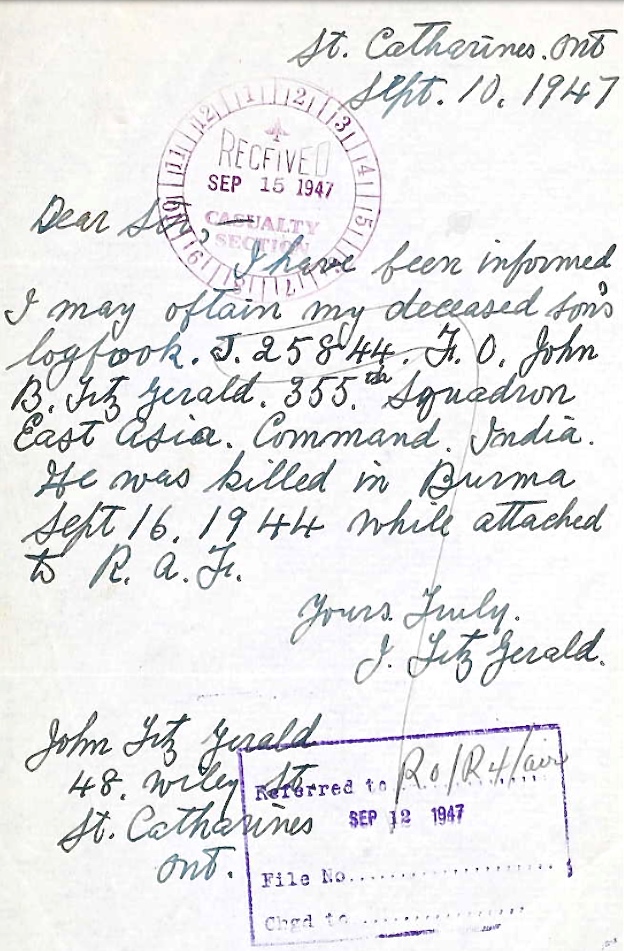 St. Catharines. Ont
Sept. 10, 1947
12 1 2 3 4 5 7 8 9 10 11
RECEIVED
SEP 15 1947
CASUALTY
SECTION
Dear Sir,
I have been informed
I may obtain my deceased son's
logbook. J. 25844. F. O. John
B. Fitz Gerald. 355th Squadron
East Asia. Command. India.
He was killed in Burma
Sept 16. 1944 while attached
to R. A. F.
Yours Truly.
J. Fitz Gerald.
John Fitz Gerald
48. Wiley St.
St. Catharines
Ont.
Referred to R0/R4/air
SEP 12 1947
File No.
Chgd to